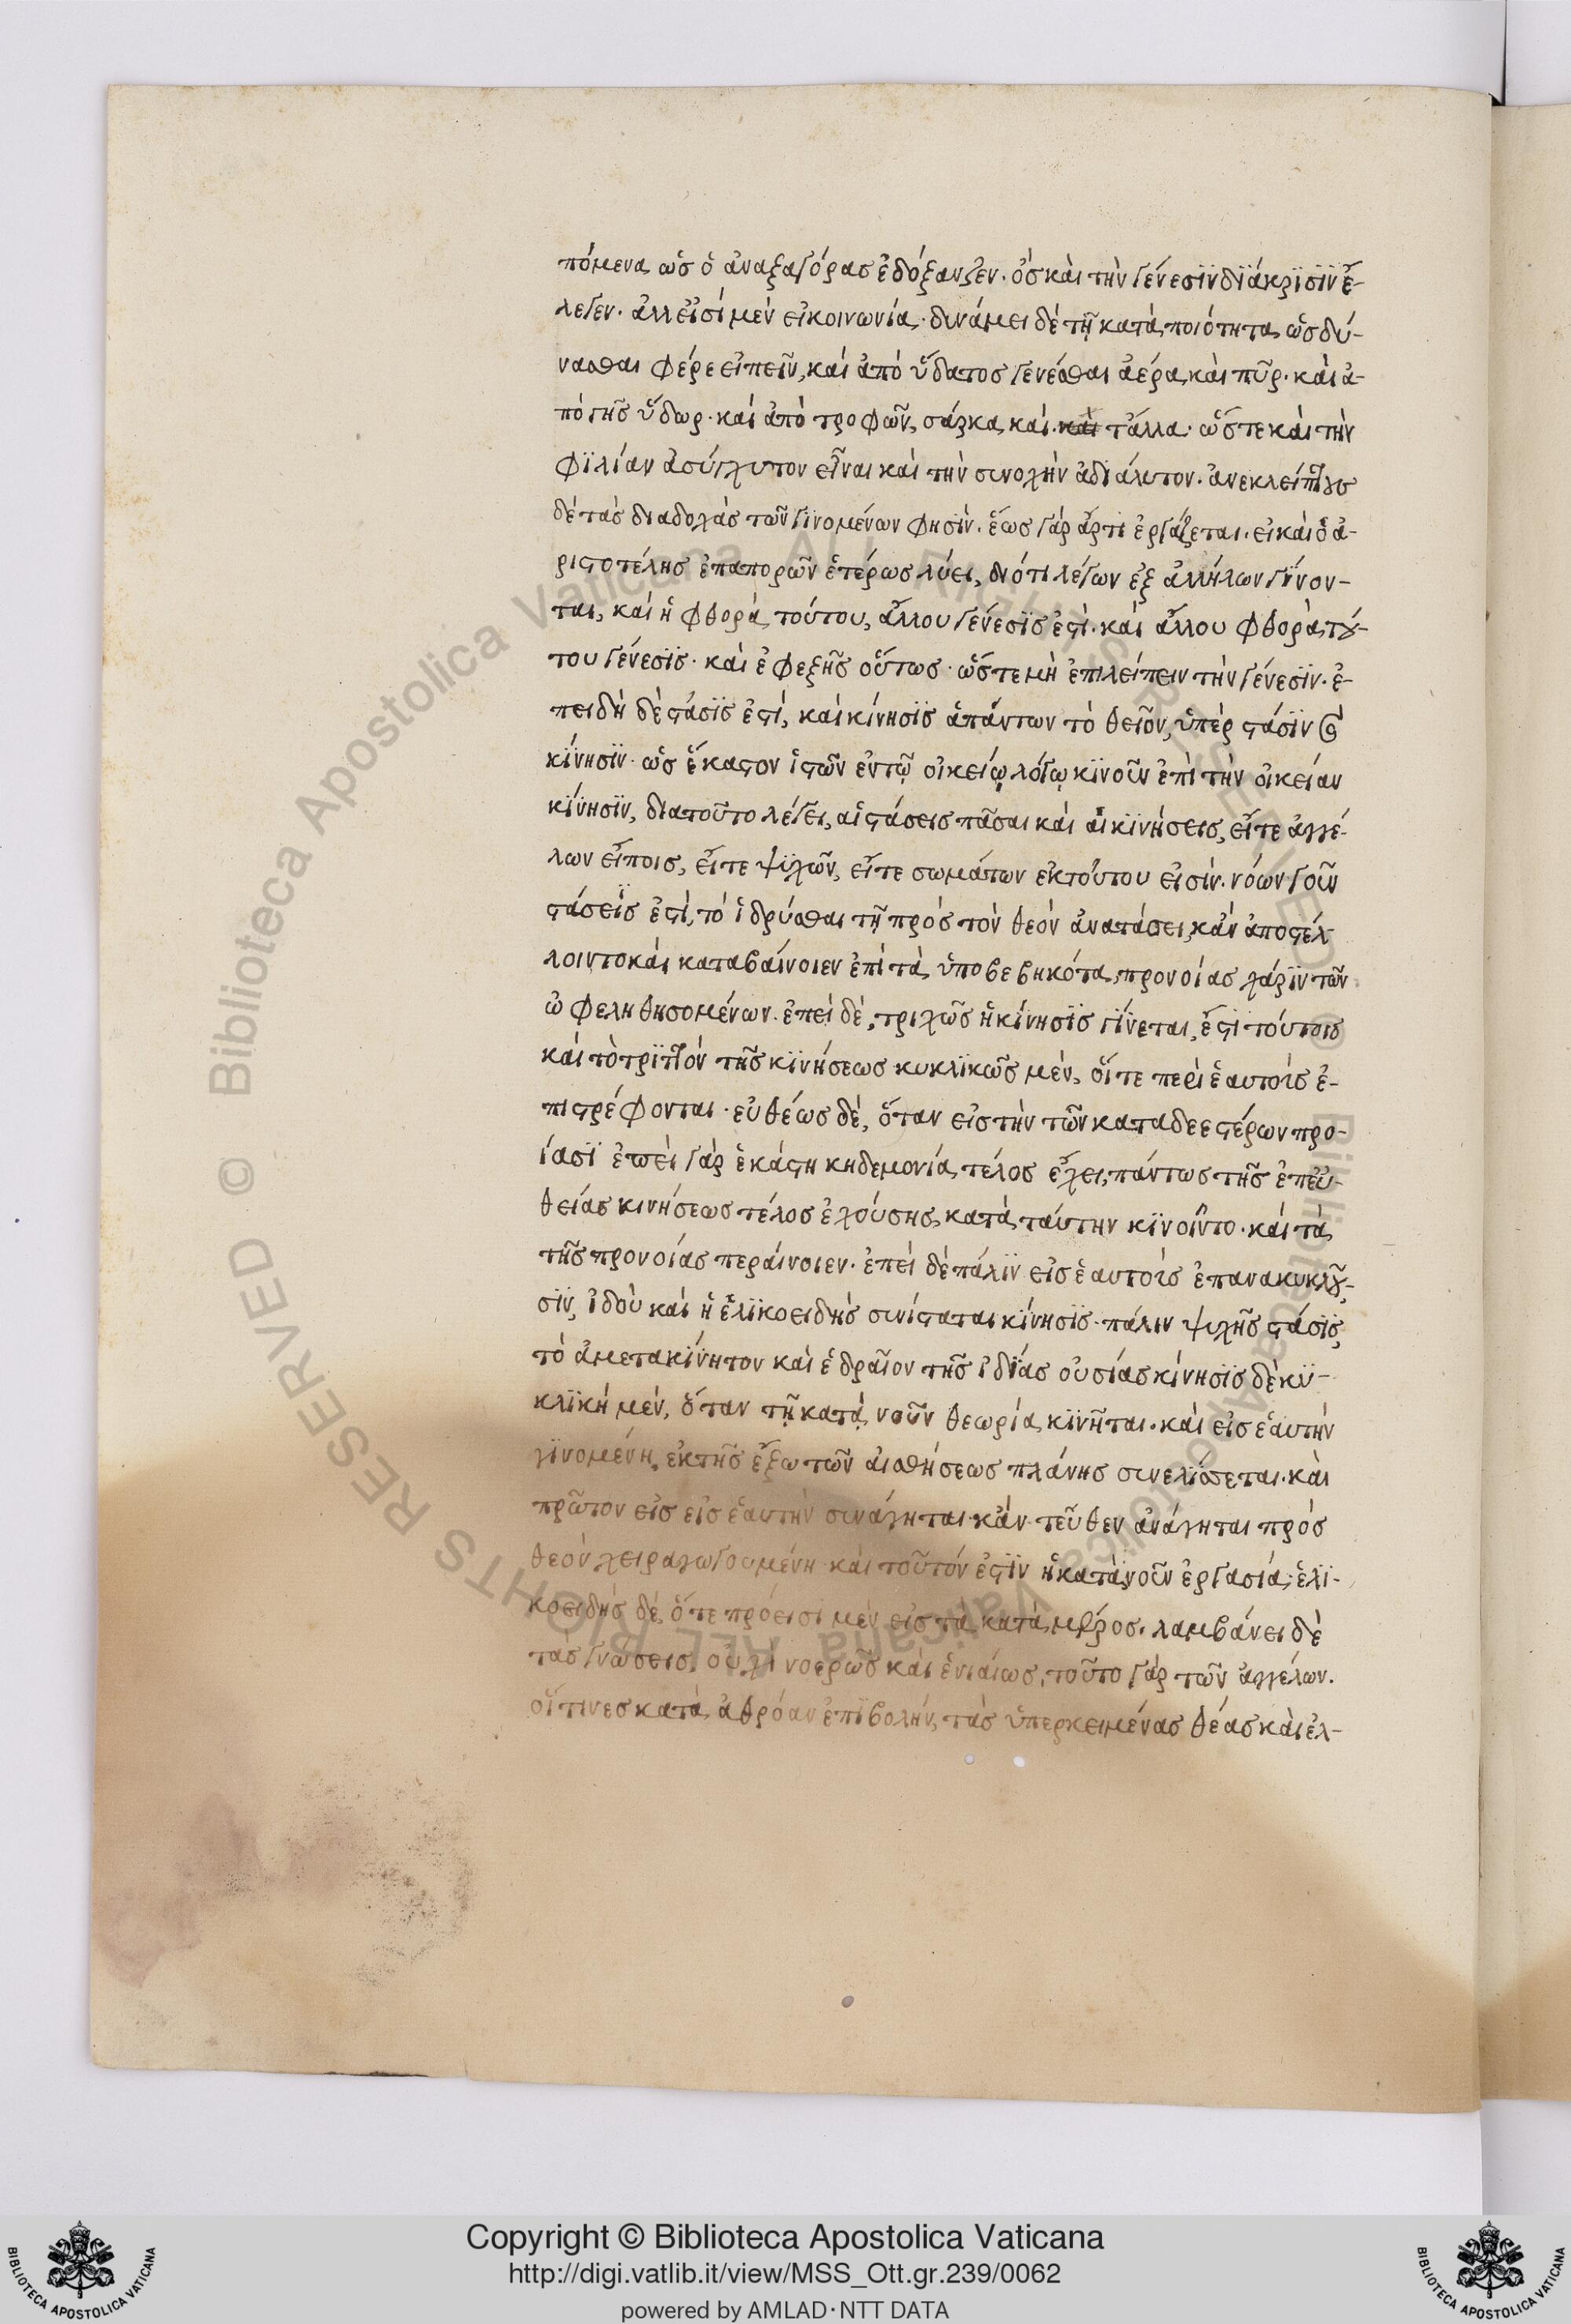 πόμενα ὡς ὁ ἀναξαγόρας ἐδόξανζεν. ὁς καὶ τὴν γένεσϊν διάκρϊσϊν ἔ-
λεγεν. ἀλλ εἰσί μέν εἰ κοινωνία. δυνάμει δὲ τῇ κατὰ ποιότητα ὡς δύ-
νασθαι φέρε εἰπεῖν, καὶ ἀπὸ ὕδατος γενέσθαι ἀέρα, καὶ πῦρ. καὶ ἀ-
πὸ γῆς ὕδωρ. καὶ ἀπὸ τροφῶν, σάρκα, καὶ καὶ τἄλλα. ὥστε καὶ τὴν
φϊλίαν ἀσύγχυτον εἶναι καὶ τὴν συνοχὴν ἀδιάλυτον. ἀνεκλείπτους
δὲ τὰς διαδοχὰς τῶν γϊνομένων φησϊν. ἕως γὰρ ἄρτι ἐργάζεται. εἰ καὶ ὁ ἀ-
ριστοτέλης ἐπαπορῶν ἑτέρως λύει, διότι λέγων ἐξ ἀλλήλων γίνον-
ται, καὶ ἡ φθορὰ τούτου, ἄλλου γένεσϊς ἐστι. καὶ ἄλλου φθορὰ, τού-
του γένεσϊς. καὶ ἐφεξῆς οὕτως. ὥστε μὴ ἐπιλείπειν τὴν γένεσϊν. ἐ-
πειδὴ δὲ στάσϊς ἐστί, καὶ κίνησϊς ἁπάντων τὸ θεῖον, ὑπὲρ στάσϊν καὶ
κίνησϊν. ὡς ἕκαστον ἱστῶν ἐν τῷ οἰκείῳ λόγῳ κϊνοῦν ἐπὶ τὴν οἰκείαν
κίνησϊν, διατοῦτο λέγει, αἱ στάσεις πᾶσαι καὶ αἱ κϊνήσεις, εἴτε ἀγγέ-
λων εἴποις, εἴτε ψϋχῶν, εἴτε σωμάτων ἐκ τούτου εἰσίν. νόων γοῦν
στάσεϊς ἐστί, τό ἱδρύσθαι τῇ πρὸς τὸν θεὸν ἀνατάσει, κἂν ἀποστέλ
λοιντο καὶ καταβαίνοιεν ἐπὶ τὰ ὑποβεβηκότα, προνοίας χάρϊν τῶν
ὠφεληθησομένων. ἐπεὶ δὲ, τριχῶς ἡ κίνησϊς γϊνεται, ἔστϊ τούτοις
καὶ τὸ τρϊττὸν τῆς κϊνήσεως κυκλϊκῶς μέν, ὅτε περὶ ἑαυτοὺς ἐ-
πιστρέφονται. εὐθέως δὲ, ὅταν εἰς τὴν τῶν καταδεεστέρων προ-
ίασϊ ἐπεὶ γὰρ ἑκάστη κηδεμονία, τέλος ἔχει, πάντως τῆς ἐπ εὐ-
θείας κινήσεως τέλος ἐχούσης, κατὰ ταύτην κϊνοῖντο. καὶ τὰ
τῆς προνοίας περαίνοιεν. ἐπεὶ δὲ πάλϊν εἰς ἑαυτοὺς ἐπανακυκλοῦ-
σϊν, ἰδοὺ καὶ ἡ ἑλϊκοειδὴς συνίσταται κίνησϊς. πάλιν ψυχῆς στάσϊς,
τὸ ἀμετακίνητον καὶ ἑδραῖον τῆς ἰδίας οὐσίας κίνησϊς δὲ κϋ-
κλϊκὴ μέν, ὅταν τῇ κατὰ νοῦν θεωρίᾳ κϊνῆται. καὶ εἰς ἑαυτὴν
γϊνομένη, ἐκ τῆς ἔξω τῶν αἰσθήσεως πλάνης συνελϊσσεται. καὶ
πρῶτον εἰς εἰς ἑαυτὴν συνάγηται κἀντεῦθεν ἀνάγηται πρὸς
θεὸν χειραγωγουμένη. καὶ τοῦτόν ἐστϊν ἡ κατὰ νοῦν ἐργασία, ἑλϊ-
κοειδὴς δὲ, ὅτε πρόεισι μέν εἰς τὰ κατὰ μέρος. λαμβάνει δὲ
τὰς γνώσεις, οὐχὶ νοερῶς καὶ ἑνιαίως, τοῦτο γὰρ τῶν ἀγγέλων.
οἵτινες κατὰ ἀθρόαν ἐπϊβολήν, τὰς ὑπερκειμένας θέας καὶ ἐλ-
© Biblioteca Apostolica Vaticana ALL RIGHTS RESERVED
© Biblioteca Apostolica Vaticana ALL RIGHTS RESERVED
Copyright © Biblioteca Apostolica Vaticana
http://digi.vatlib.it/view/MSS_Ott.gr.239/0062
powered by AMLAD·NTT DATA
BIBLIOTECA APOSTOLICA VATICANA
BIBLIOTECA APOSTOLICA VATICANA